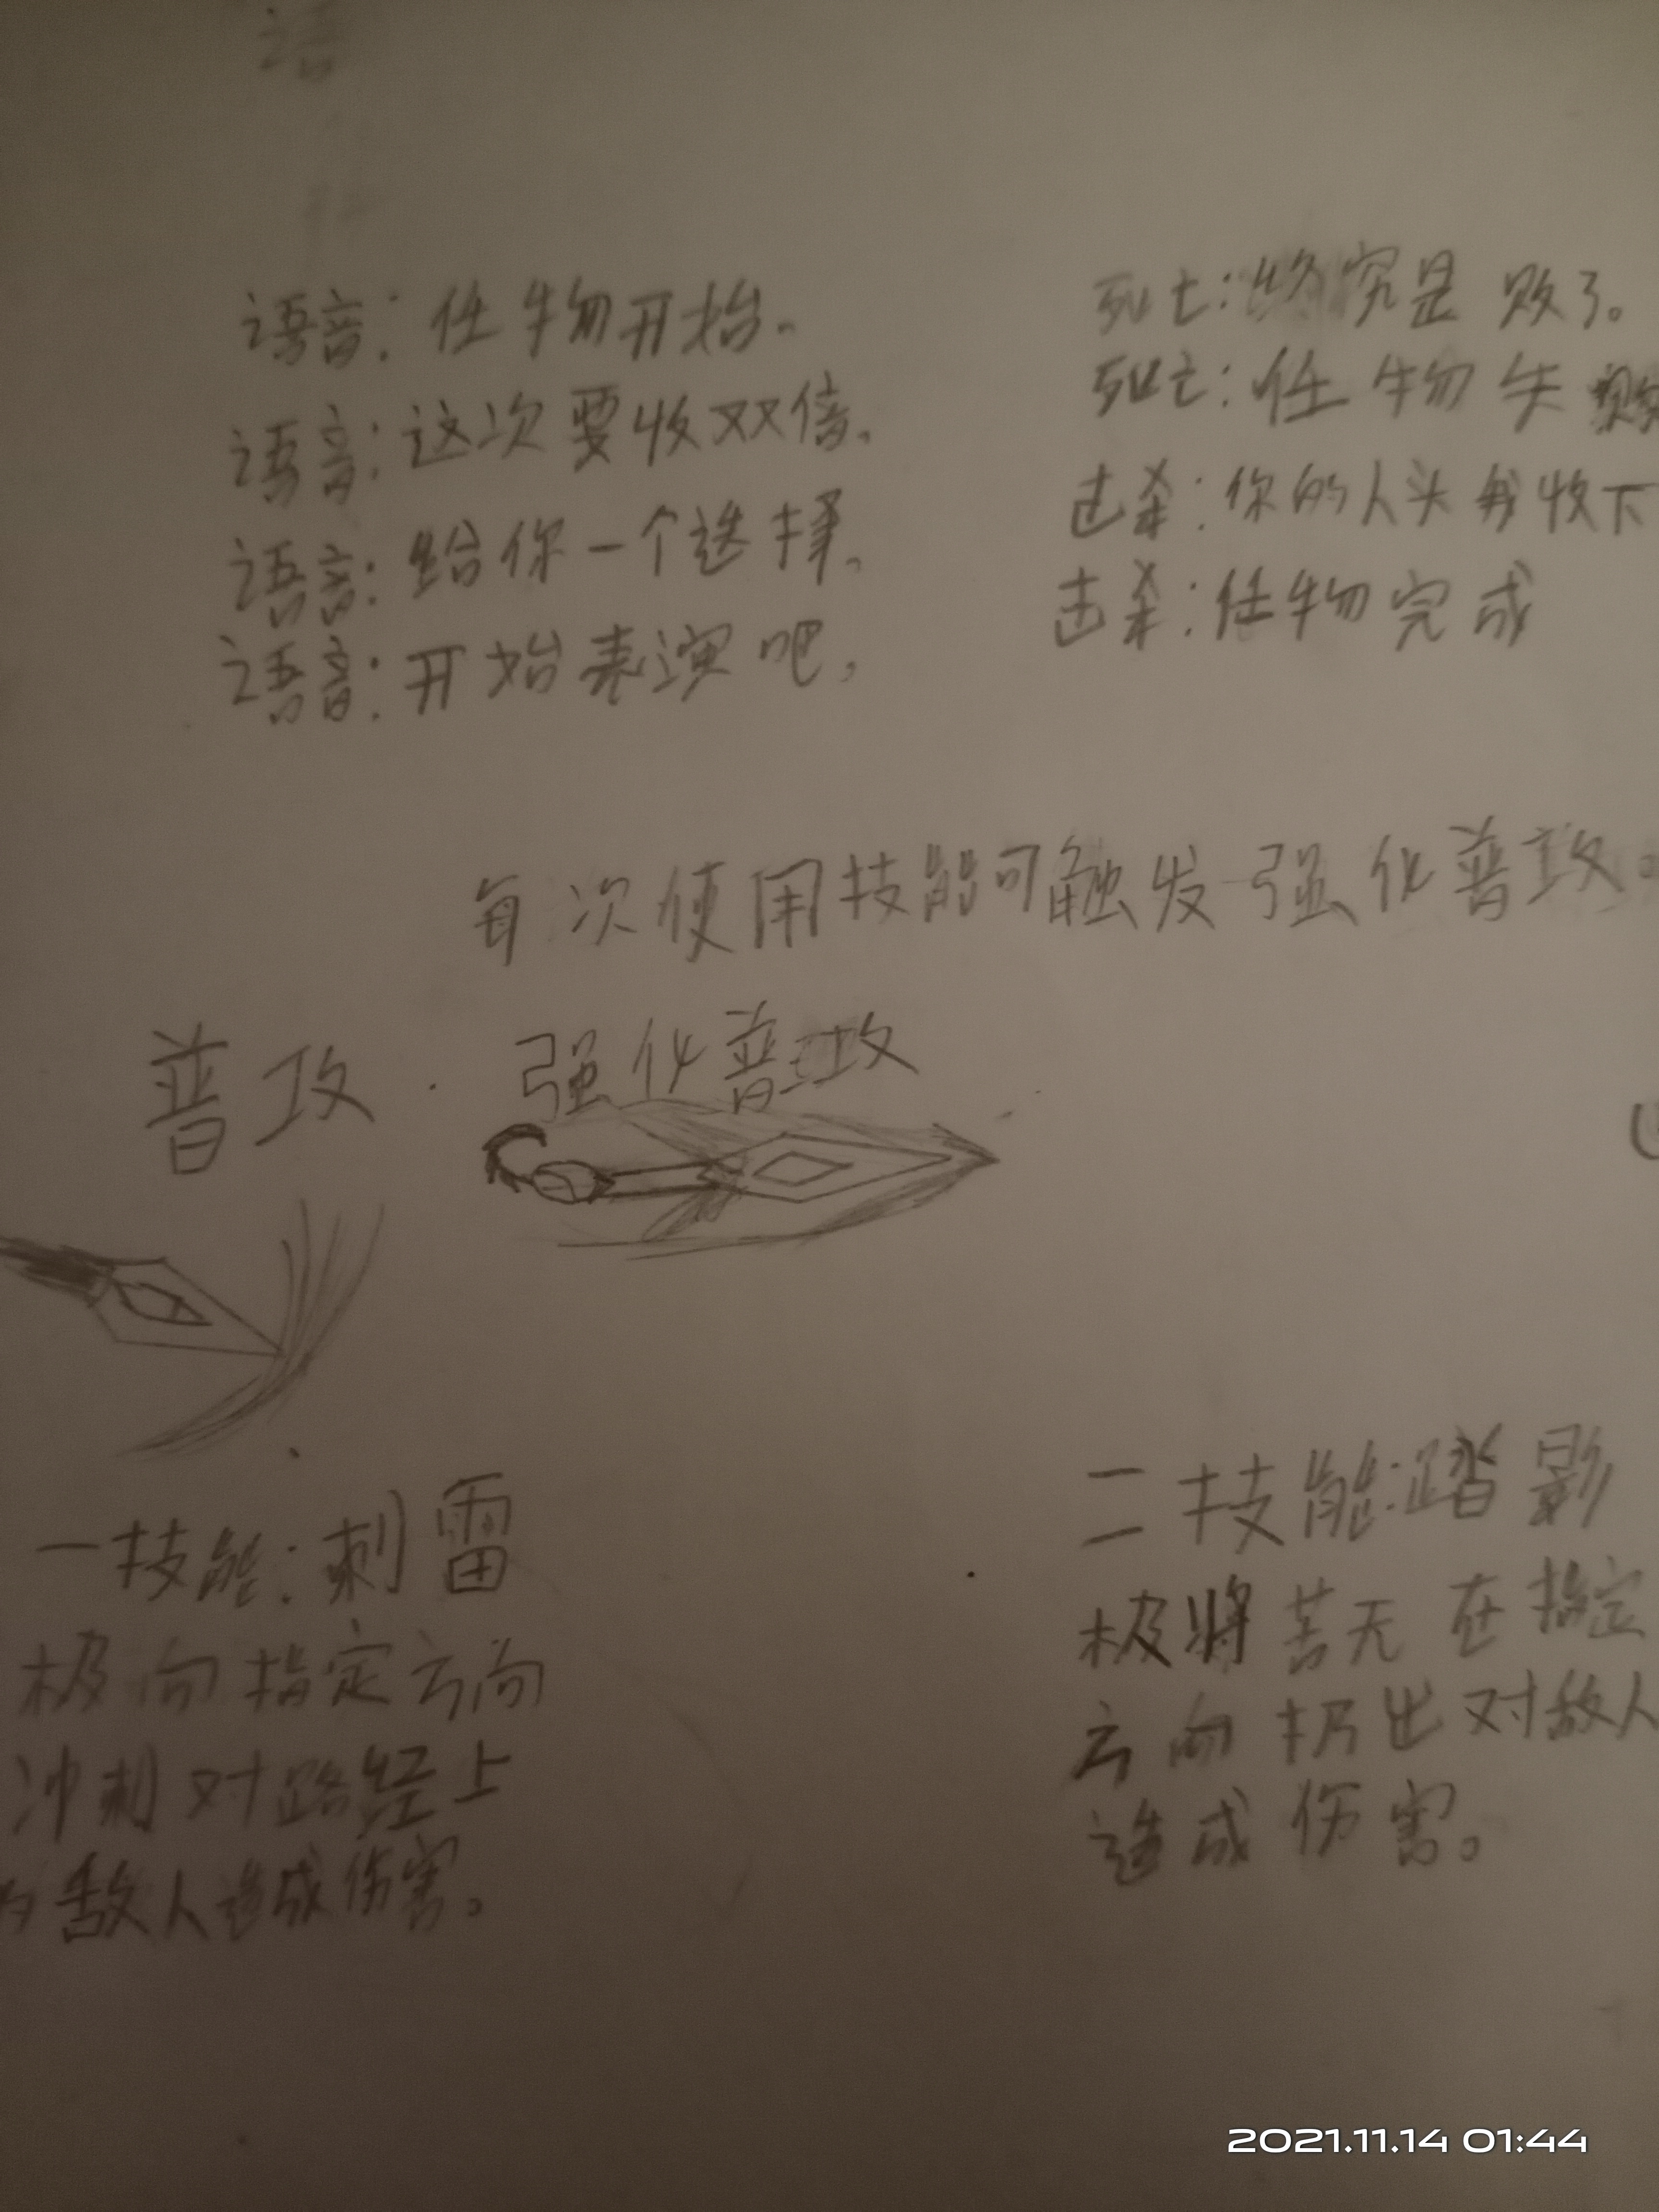 语
语音：任物开始。
语音：这次要收双倍。
语音：给你一个选择。
语音：开始表演吧，
死亡：终究是败了。
死亡：任物失败
击杀：你的人头我收下
击杀：任物完成
每次使用技能可触发强化普攻。
普攻
强化普攻
一技能：刺雷
极向指定方向
冲刺对路经上
的敌人造成伤害。
二技能：踏影
极将苦无在指定
方向扔出对敌人
造成伤害。
2021.11.14 01:44